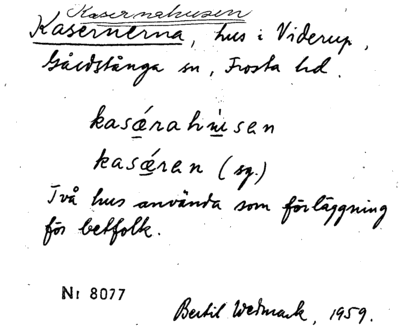 Kasernahusen
Kasernerna, hus i Viderup,
Gårdstånga sn, Frosta hd.
kasǽrahúsen
kasǽren (sg.)
Två hus använda som förläggning
för betfolk.
Nr 8077
Bertil Wedmark, 1959.